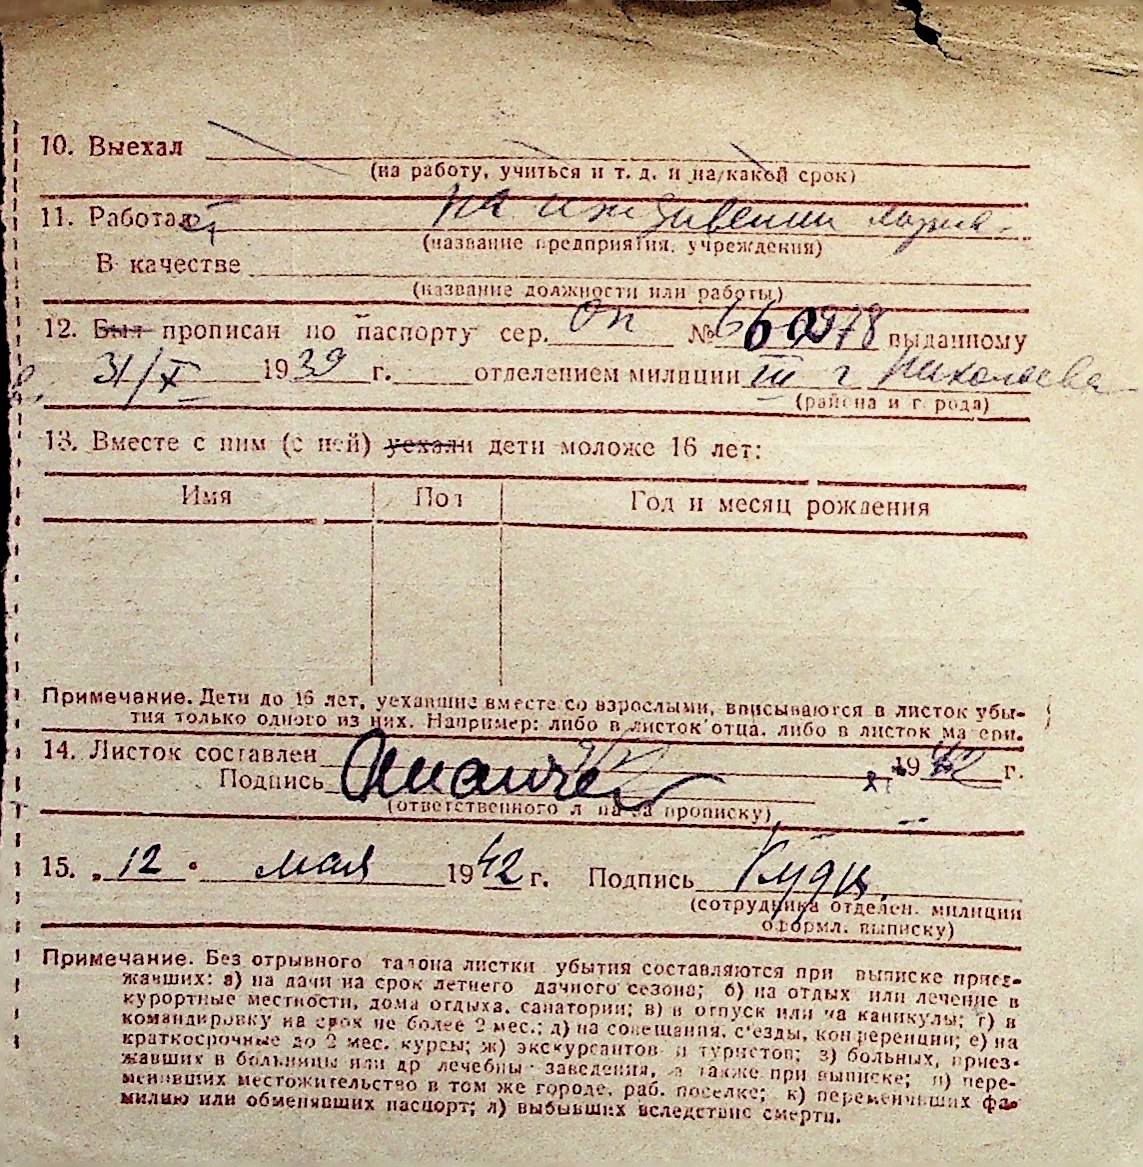 10. Выехал
(на работу, учиться и т. д. и на какой срок)
11. Работает на иждивении мужа.
(название предприятия, учреждения)
В качестве
(название должности или работы)
12. Был прописан по паспорту сер. ОП № 660978 выданному
31/X 1939 г. отделением милиции III г Николаева
(района и города)
13. Вместе с ним (с ней) уехали дети моложе 16 лет:
Имя Пол Год и месяц рождения
Примечание. Дети до 16 лет, уехавшие вместе со взрослыми, вписываются в листок убы-
тия только одного из них. Например: либо в листок отца, либо в листок матери.
14. Листок составлен 1942 г.
Подпись
(ответственного лица за прописку)
15. „12" мая 1942 г. Подпись
(сотрудника отделен. милиции
оформл. выписку)
Примечание. Без отрывного талона листки убытия составляются при выписке приез-
жавших: а) на дачи на срок летнего дачного сезона; б) на отдых или лечение в
курортные местности, дома отдыха, санатории; в) в отпуск или на каникулы; г) в
командировку на срок не более 2 мес.; д) на совещания, с'езды, конференции; е) на
краткосрочные до 2 мес. курсы; ж) экскурсантов и туристов; з) больных, приез-
жавших в больницы или др лечебные заведения, а также при выписке; и) пере-
менивших местожительство в том же городе, раб. поселке; к) переменивших фа-
милию или обменявших паспорт; л) выбывших вследствие смерти.